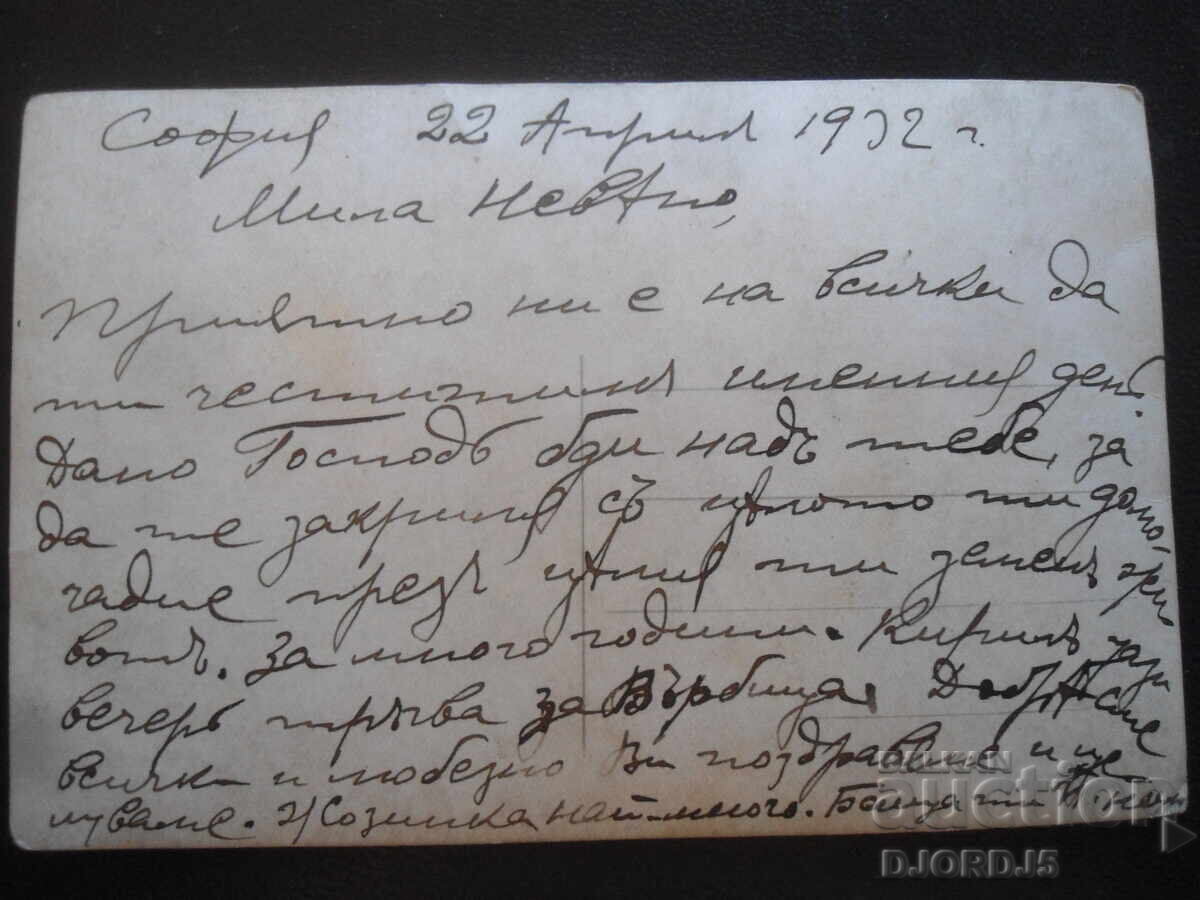 София 22 Априлъ 1932 г.
Мила Невѣно,
Приятно ни е на всички да
ти честитимъ именния день.
Дано Господъ бди надъ тебе, за
да те закриля съ цѣлото ти домо-
чадие презъ цѣлия ти земенъ жи
вотъ. За много години. Кирилъ тази
вечерь тръгва за Върбица. Добрѣ сме
всички и любезно Ви поздравяме и це
луваме. Козинка най-много.
BALKAN
auction
DJORDJ5